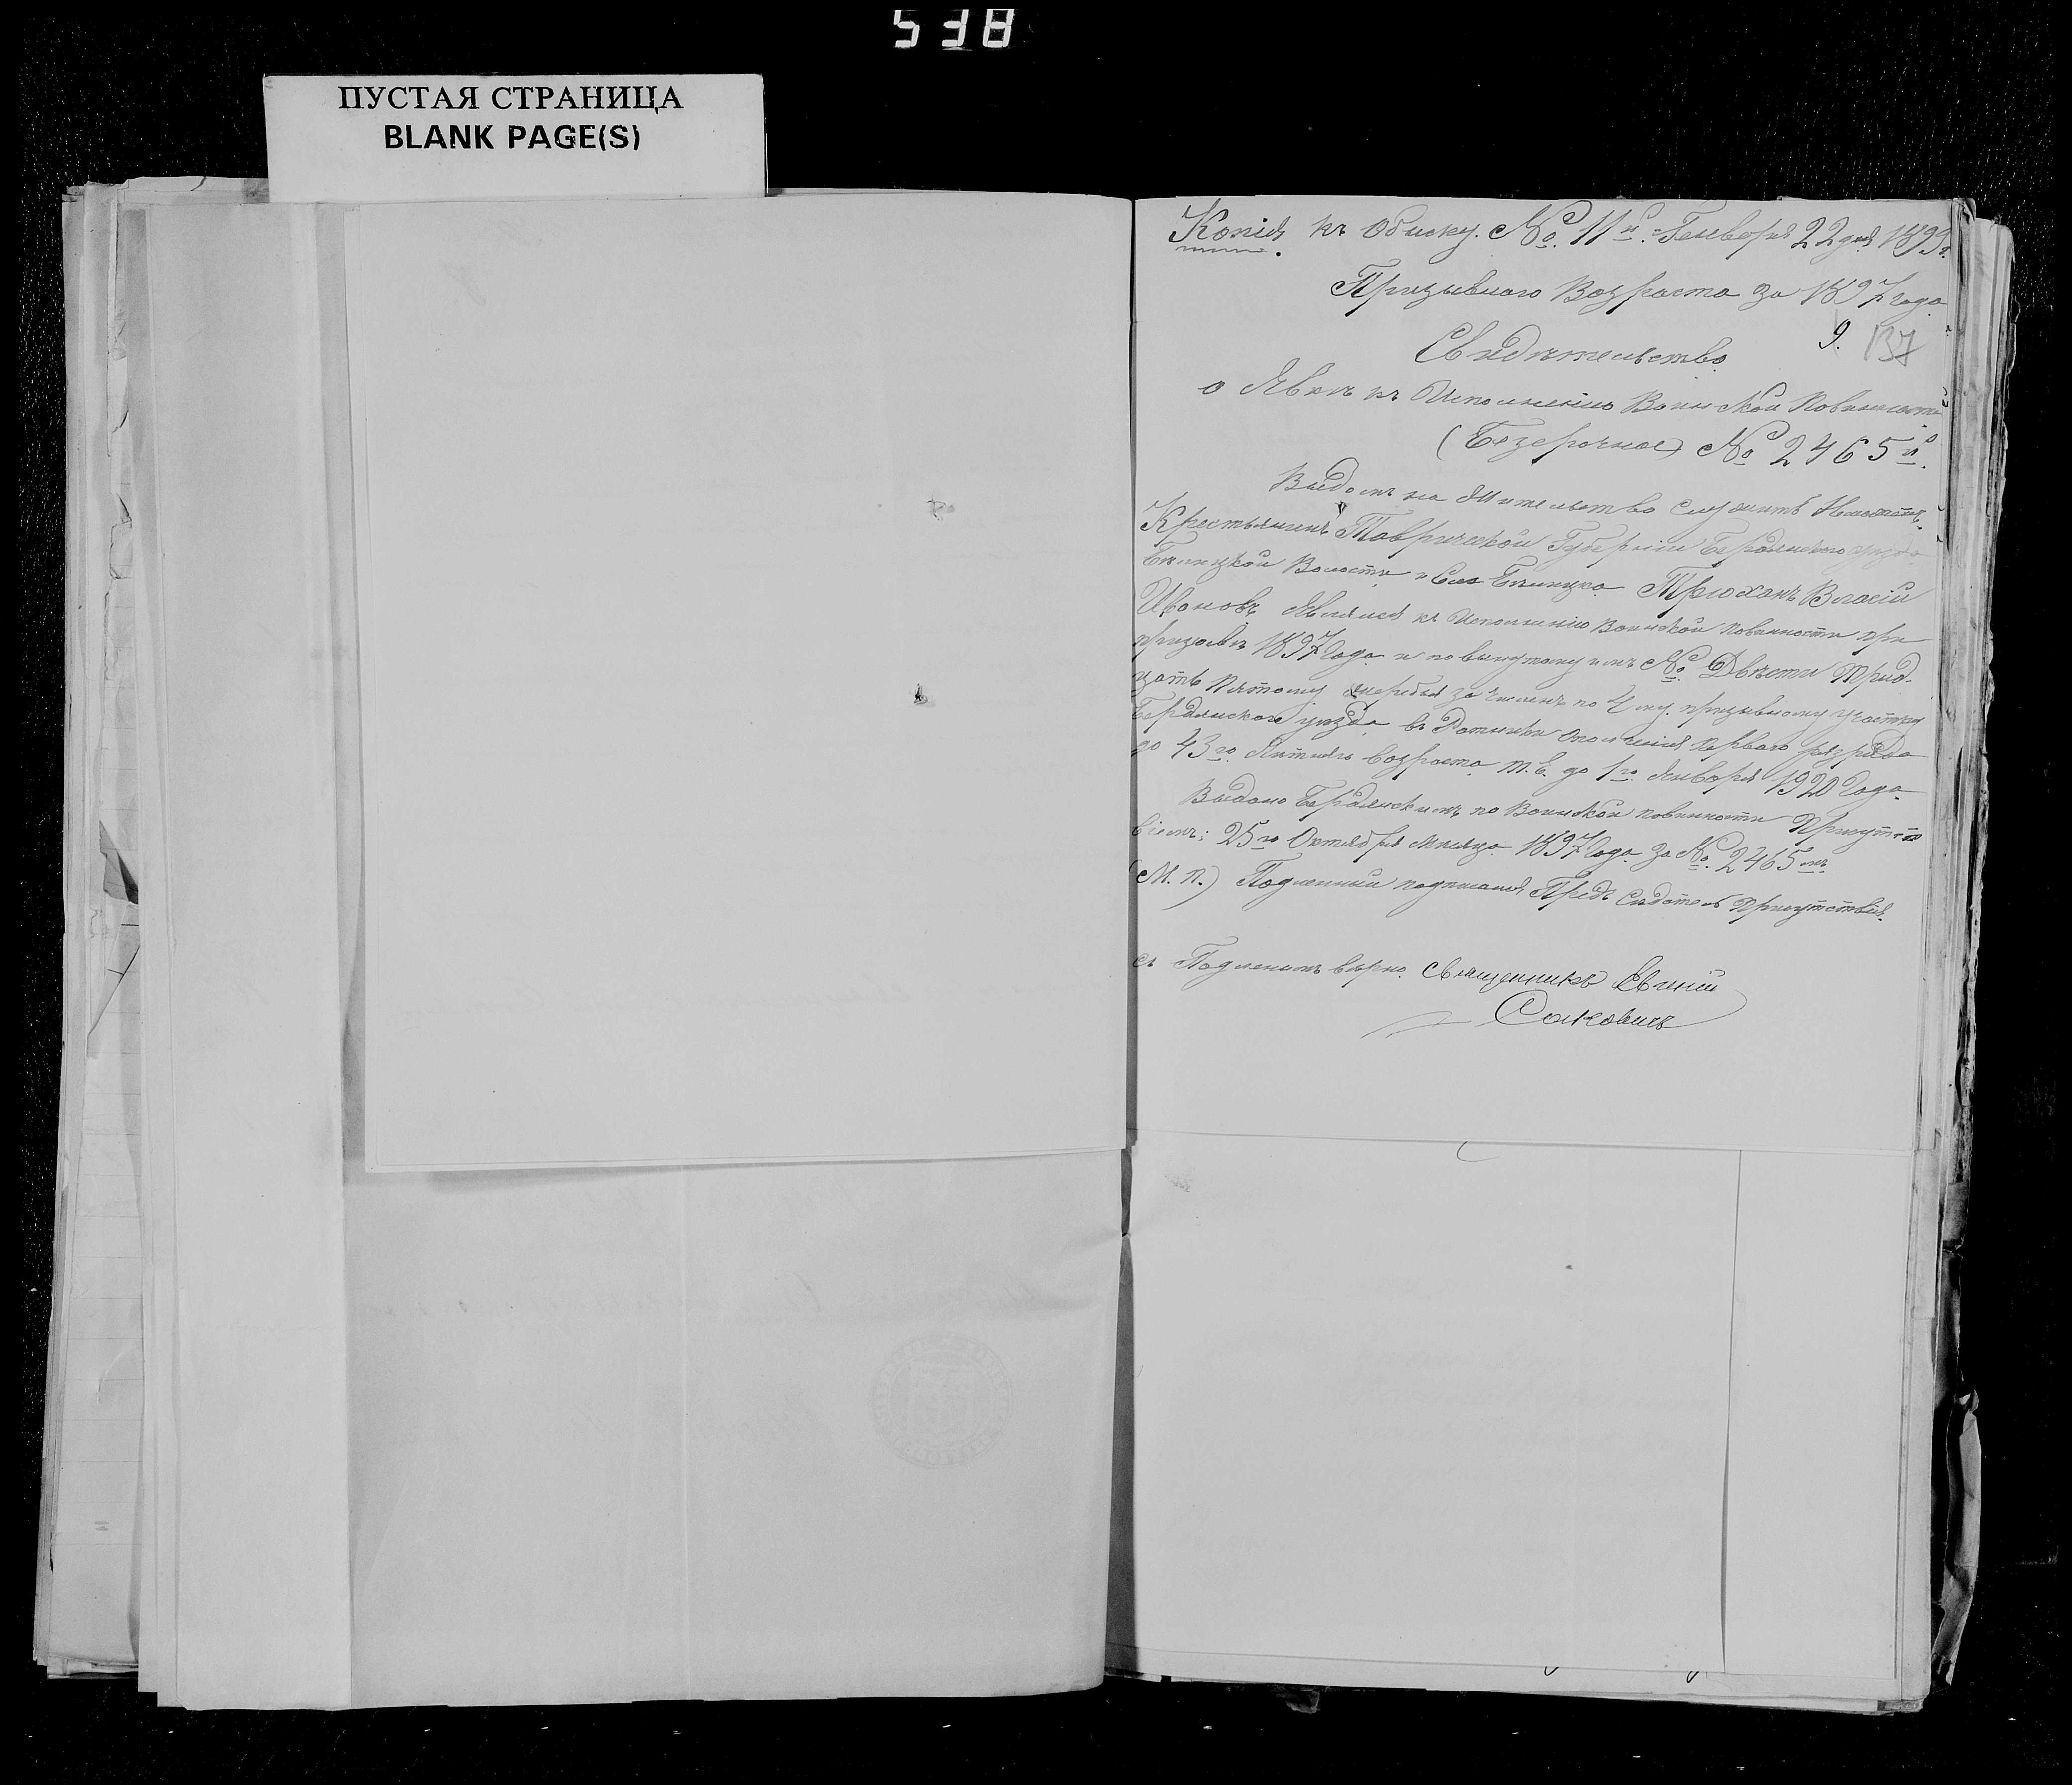 538
ПУСТАЯ СТРАНИЦА
BLANK PAGE(S)
Копія къ обыску. №. 11й. Генворя 22 дня 1899г.
Призывного Возраста за 1897 года
9. 137
Свидѣтельство
о Явкѣ къ Исполненію Воинской Повинности
(Безсрочное) № 2465й.
Крестьянинъ Таврической Губерніи Бердянского уезда
Волости Трюханъ Власій
Ивановъ Явился къ Исполненію Воинской повинности при
призывѣ 1897 Года и по вынутому имъ №. Двѣсти трид-
цать пятому жеребья зачисленъ по 4му. призывному участку
Бердянского уѣзда въ Ратники Ополченія перваго разряда
до 43го. Лѣтняго возраста т. Е. до 1го. Января 1920 Года.
Выдано Бердянскимъ по Воинской повинности Присутст-
віемъ: 25го Октября Месяца 1897 Года за №. 2465мъ
(М. П.) Подленный подписалъ Предсѣдатель Присутствія.
съ Подленымъ вѣрно. Священникъ Евгеній
Саковичъ